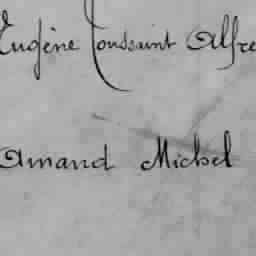 Eugène Toussaint Alfre
Amand Michel